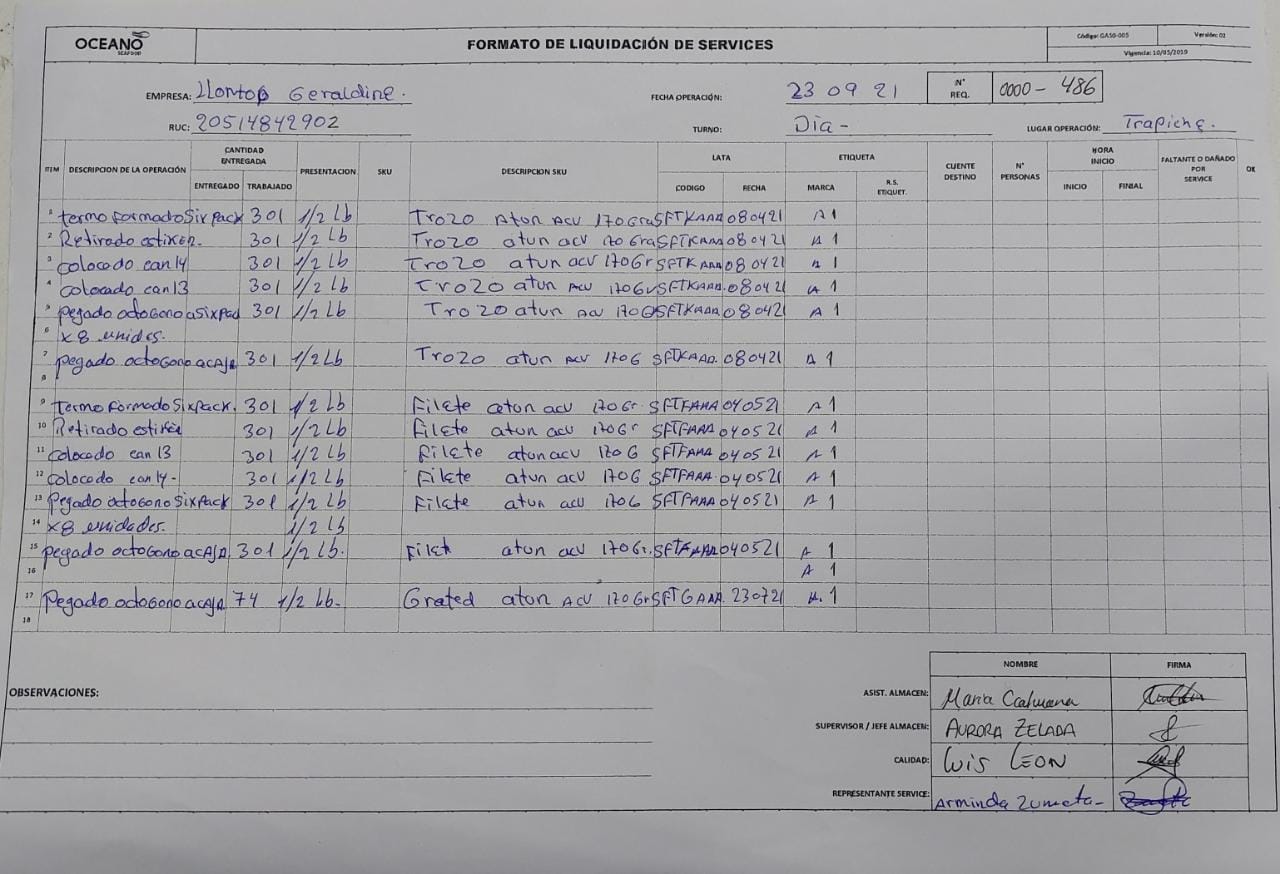 OCEANO SEAFOOD
FORMATO DE LIQUIDACIÓN DE SERVICES
Código: GA50-005 Versión: 02
Vigencia: 10/05/2019
EMPRESA: Llontop Geraldine.
FECHA OPERACIÓN: 23 09 21
N° REQ. 0000 - 486
RUC: 20514842902
TURNO: Día -
LUGAR OPERACIÓN: Trapiche.
ITEM DESCRIPCION DE LA OPERACIÓN CANTIDAD ENTREGADA ENTREGADO TRABAJADO PRESENTACION SKU DESCRIPCION SKU LATA CODIGO FECHA ETIQUETA MARCA R.S. ETIQUET. CLIENTE DESTINO N° PERSONAS HORA INICIO INICIO FINIAL FALTANTE O DAÑADO POR SERVICE
1 termo formado Six pack 301 1/2 Lb Trozo Atun acv 170Gra SFTKAAA 080421 A 1
2 Retirado estiker. 301 1/2 Lb Trozo atun acv 170 Gra SFTKAAA 080421 A 1
3 colocado can 14 301 1/2 Lb Trozo atun acv 170Gr SFTKAAA 080421 A 1
4 colocado can 13 301 1/2 Lb Trozo atun acv 170Gr SFTKAAA. 080421 A 1
5 pegado octogono a Six pad 301 1/2 Lb Trozo atun acv 170G SFTKAAA 08042 A 1
6 x 8 unides.
7 pegado octogono a cAjA 301 1/2 Lb Trozo atun acv 170G SFTKAAA. 080421 A 1
8
9 Termo formado Six pack. 301 1/2 Lb Filete atun acv 170Gr SFTFAAA 040521 A 1
10 Retirado estiker 301 1/2 Lb Filete atun acv 170Gr SFTFAAA 040521 A 1
11 colocado can 13 301 1/2 Lb Filete atun acv 170 G SFTFAAA 040521 A 1
12 colocado can 14 - 301 1/2 Lb Filete atun acv 170G SFTFAAA. 040521 A 1
13 Pegado octogono Six Pack 301 1/2 Lb Filete atun acv 170G SFTFAAA 040521 A 1
14 x8 unidades. 1/2 Lb
15 pegado octogono a cAjA. 301 1/2 Lb. Filet atun acv 170Gr. SFTFAAA 040521 A 1
16 A 1
17 Pegado octogono a cAjA 74 1/2 Lb. Grated atun Acv 170Gr SFTGAAA. 230721 A. 1
18
NOMBRE FIRMA
OBSERVACIONES:
ASIST. ALMACEN: Maria
SUPERVISOR / JEFE ALMACEN: AURORA ZELADA
CALIDAD: LUIS LEON
REPRESENTANTE SERVICE: Arminda Zumeta-